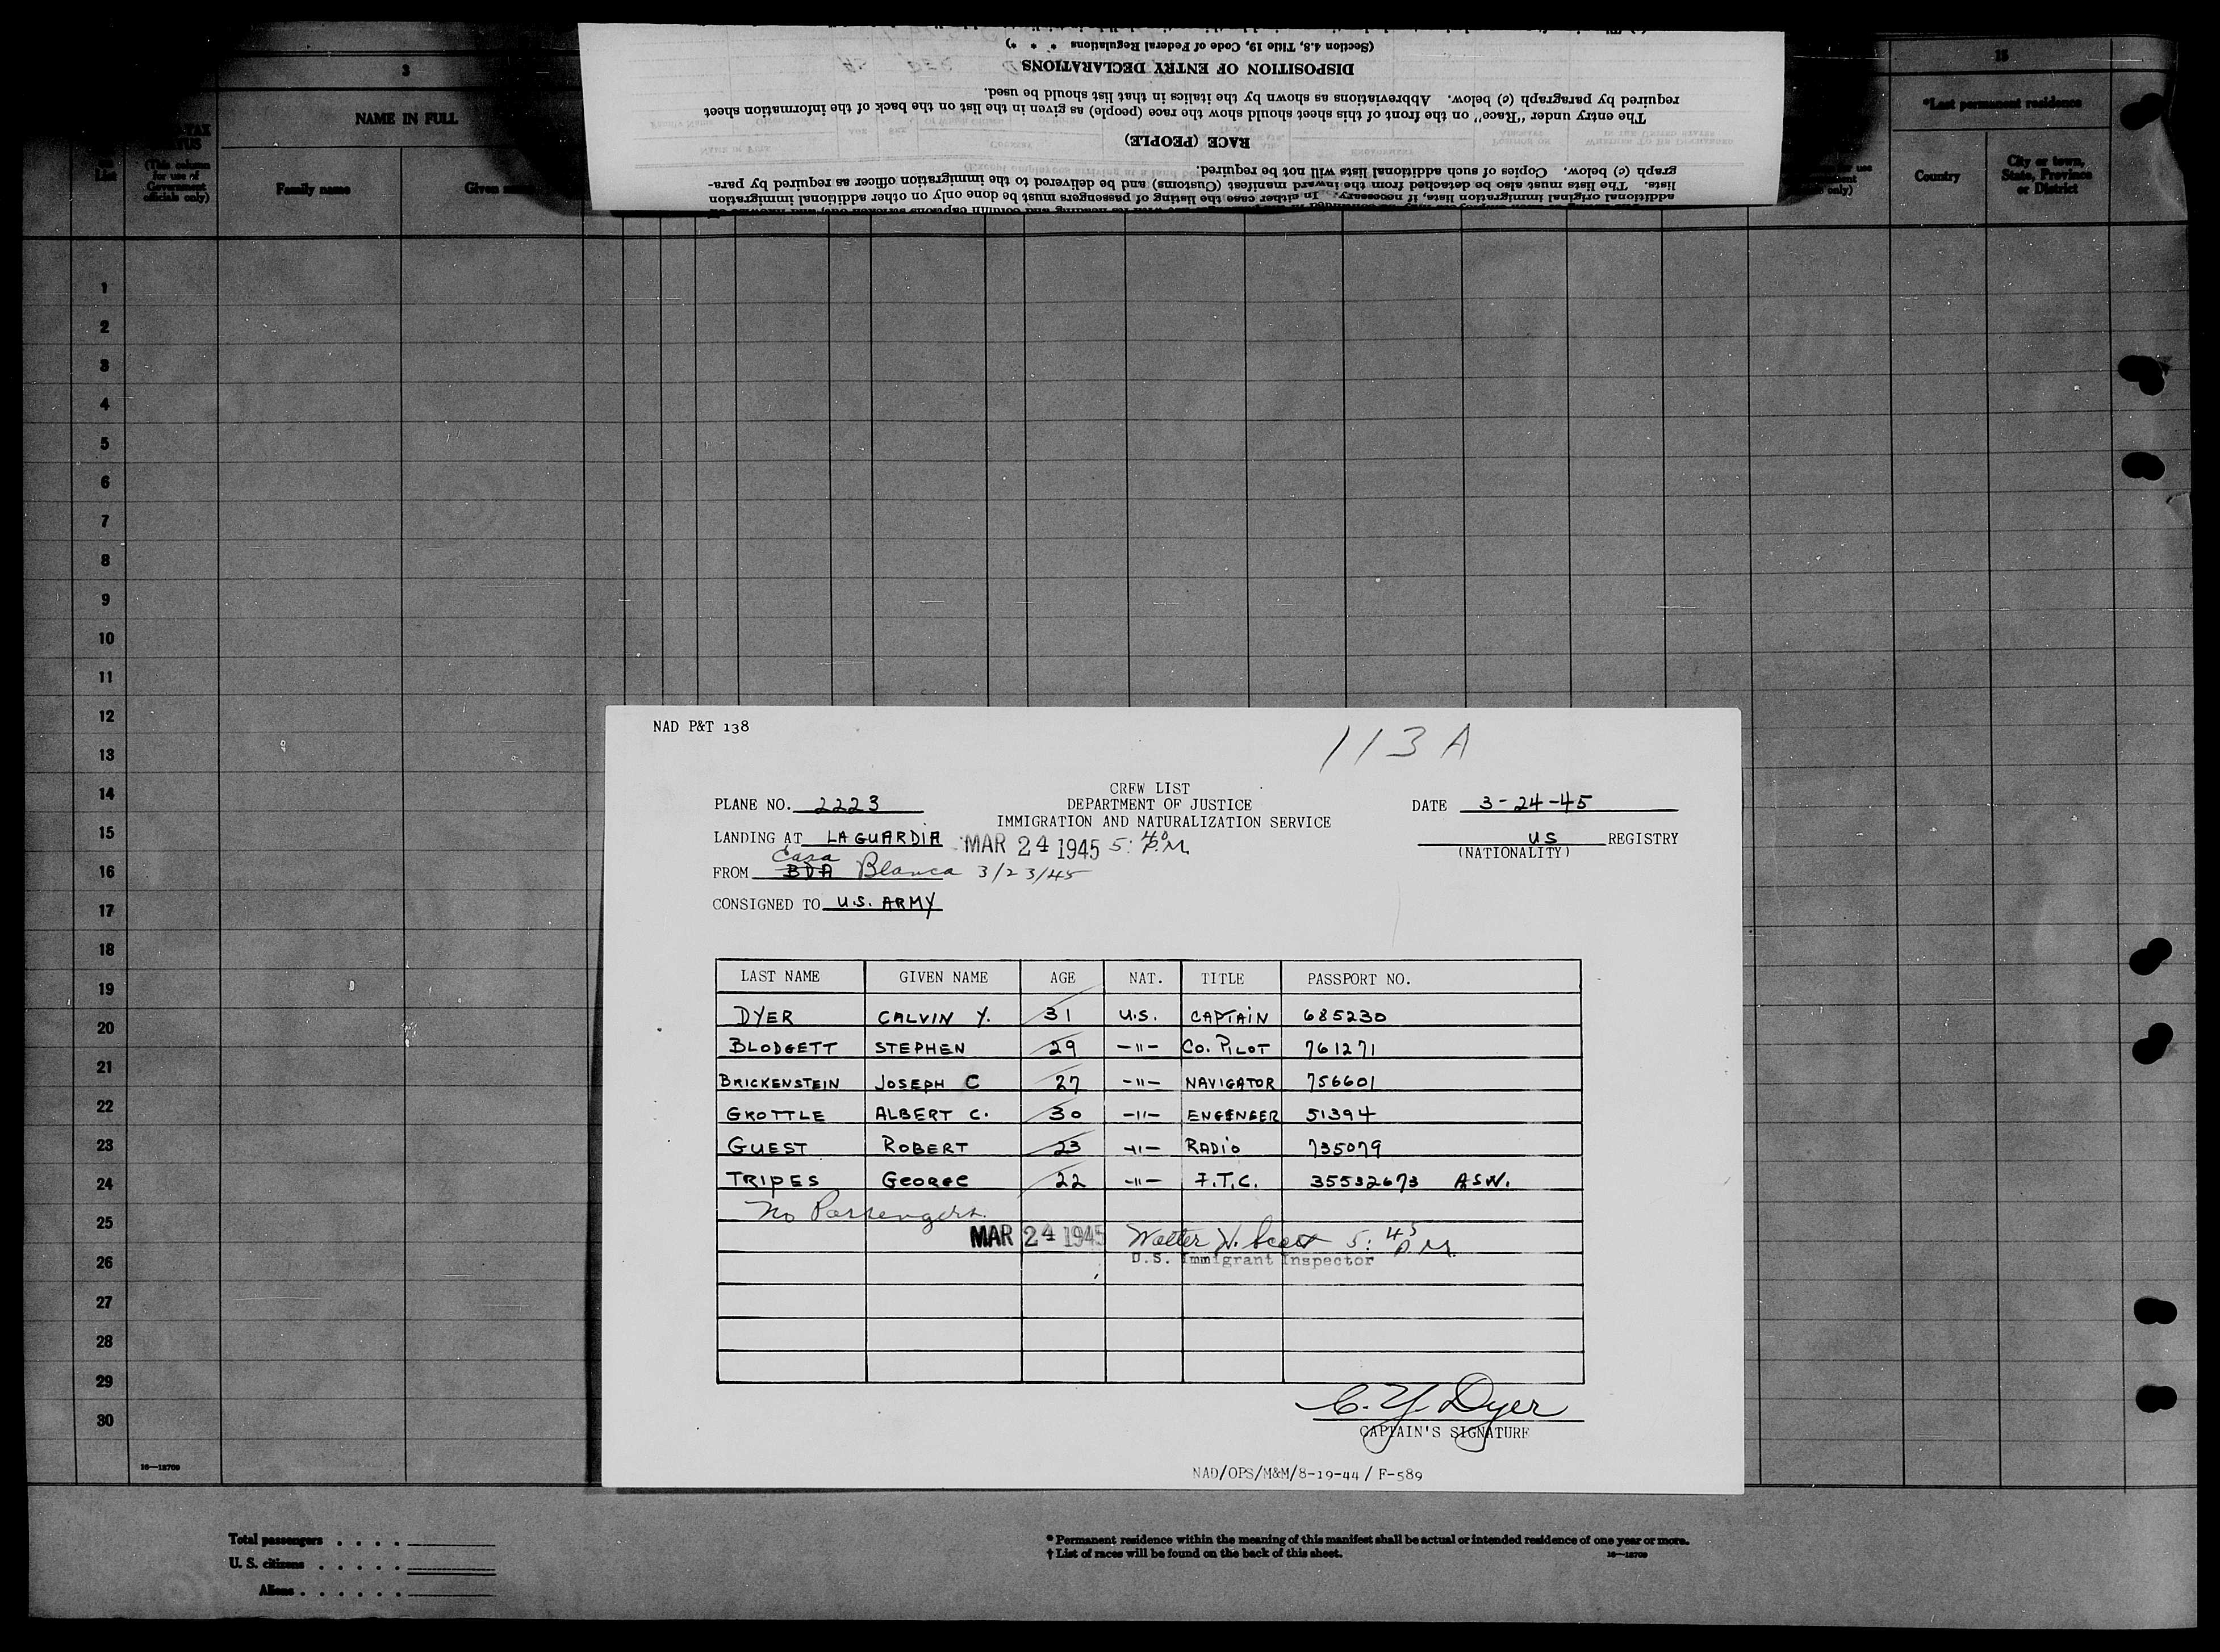 3
NAME IN FULL
(This column
for use of
Government
officials only)
Family name
Given
15
*Last permanent residence
Country
City or town,
State, Province
or District
(Section 4.8, Title 19, Code of Federal Regulations * * *)
DISPOSITION OF ENTRY DECLARATIONS
required by paragraph (c) below. Abbreviations as shown by the italics in that list should be used.
The entry under "Race" on the front of this sheet should show the race (people) as given in the list on the back of the information sheet
RACE (PEOPLE)
graph (c) below. Copies of such additional lists will not be required.
lists. The lists must also be detached from the inward manifest (Customs) and be delivered to the immigration officer as required by para-
additional original immigration lists, if necessary. In either case the listing of passengers must be done only on other additional immigration
1
2
3
4
5
6
7
8
9
10
11
12
13
14
15
16
17
18
19
20
21
22
23
24
25
26
27
28
29
30
16—18709
NAD P&T 138
113 A
CREW LIST
PLANE NO. 2223 DEPARTMENT OF JUSTICE DATE 3-24-45
IMMIGRATION AND NATURALIZATION SERVICE
LANDING AT LA GUARDIA MAR 24 1945 5:40 P.M. US REGISTRY
(NATIONALITY)
FROM BDA Casa Blanca 3/23/45
CONSIGNED TO U.S. ARMY
LAST NAME GIVEN NAME AGE NAT. TITLE PASSPORT NO.
DYER CALVIN Y. 31 U.S. CAPTAIN 685230
BLODGETT STEPHEN 29 -"- CO. PILOT 761271
BRICKENSTEIN JOSEPH C 27 -"- NAVIGATOR 756601
GROTTLE ALBERT C. 30 -"- ENGENEER 51394
GUEST ROBERT 23 -"- RADIO 735079
TRIPES GEORGE 22 -"- F.T.C. 35532673 ASN.
No Passengers
MAR 24 1945 Walter W. Scott 5:45 P.M.
U.S. Immigrant Inspector
C. Y. Dyer
CAPTAIN'S SIGNATURE
NAD/OPS/M&M/8-19-44/ F-589
Total passengers . . . .
U. S. citizens . . . . .
Aliens . . . . . .
* Permanent residence within the meaning of this manifest shall be actual or intended residence of one year or more.
† List of races will be found on the back of this sheet. 16—18709